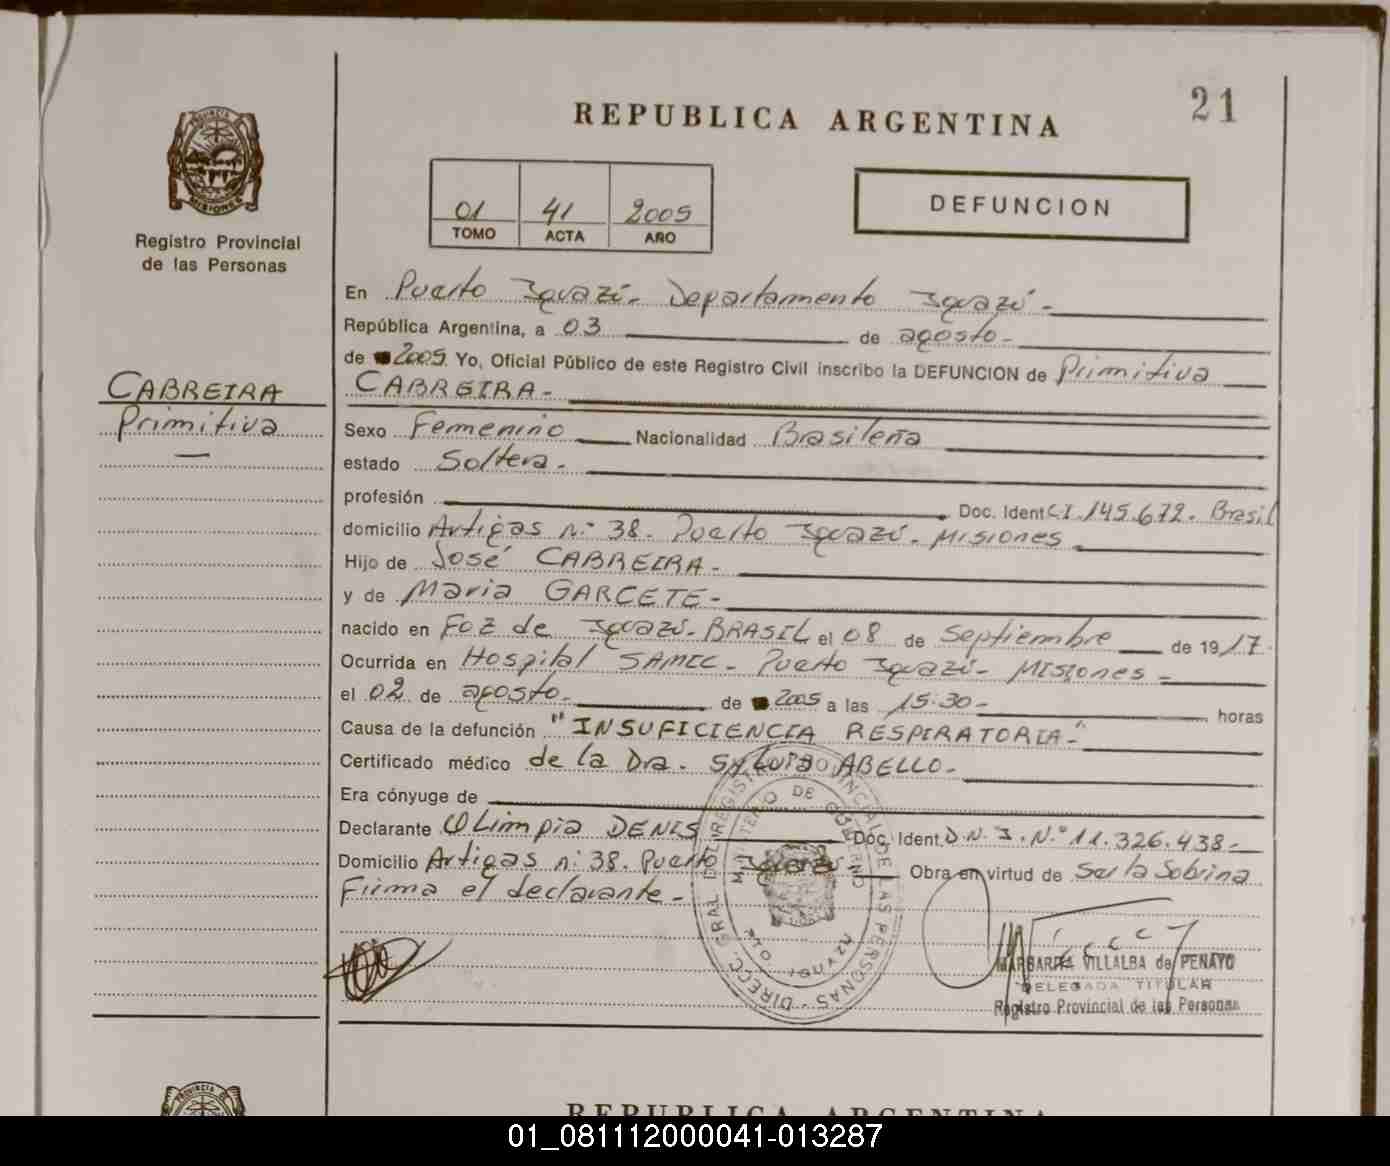 21
REPUBLICA ARGENTINA
PROVINCIA DE
MISIONES
Registro Provincial
de las Personas
01 41 2005
TOMO ACTA AÑO
DEFUNCION
CABREIRA
Primitiva
En Puerto Iguazú- Departamento Iguazú-
República Argentina, a 03 de agosto-
de 2005 Yo, Oficial Público de este Registro Civil inscribo la DEFUNCION de Primitiva
CABREIRA-
Sexo Femenino Nacionalidad Brasileña
estado Soltera-
profesión Doc. Ident C.I. 145.672. Brasil
domicilio Artigas n: 38. Puerto Iguazú. Misiones
Hijo de José CABREIRA-
y de Maria GARCETE-
nacido en Foz de Iguazú-BRASIL el 08 de Septiembre de 1917.
Ocurrida en Hospital SAMIC- Puerto Iguazú- Misiones-
el 02 de agosto- de 2005 a las 15.30- horas
Causa de la defunción "INSUFICIENCIA RESPIRATORIA-"
Certificado médico de la Dra. Sylvia ABELLO-
Era cónyuge de
Declarante Olimpia DENIS Doc. Ident D.N.I. N.° 11.326.438-
Domicilio Artigas n: 38. Puerto Iguazú Obra en virtud de Ser la Sobrina
Firma el declarante-
DIRECC. GRAL. DEL REGISTRO PROVINCIAL DE LAS PERSONAS
MINISTERIO DE GOBIERNO
PTO. IGUAZU
MARGARITA VILLALBA de PENAYO
DELEGADA TITULAR
Registro Provincial de las Personas
PROVINCIA DE
REPUBLICA ARGENTINA
01_081112000041-013287